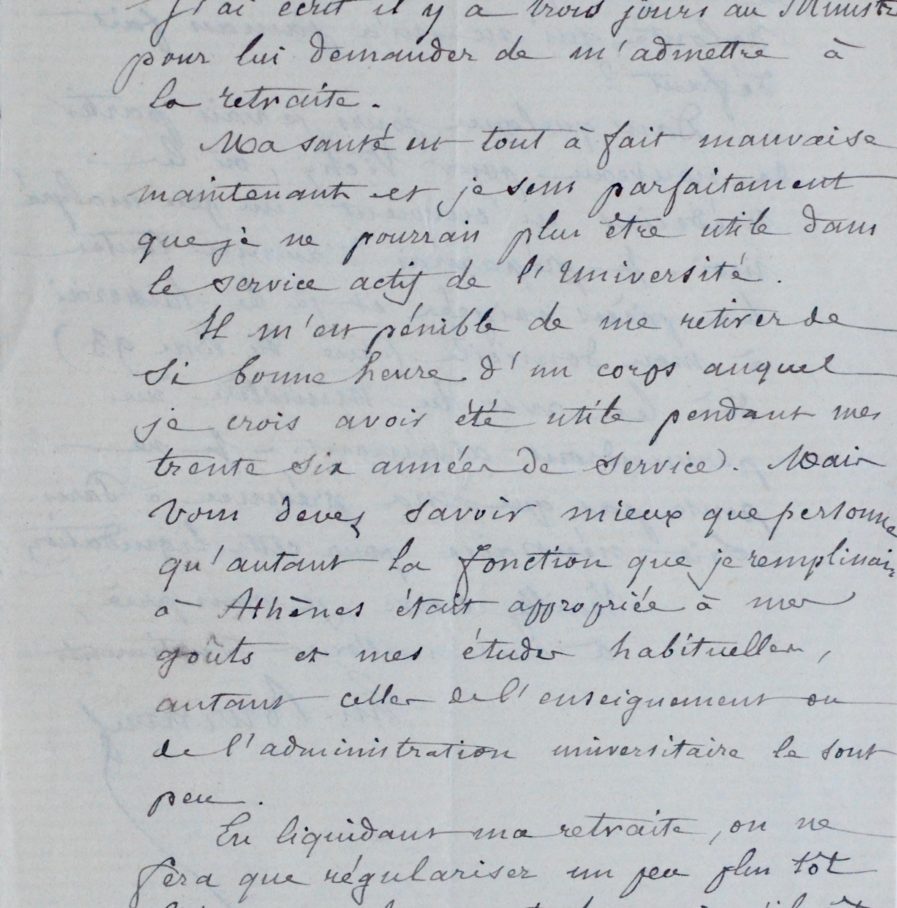 J'ai écrit il y a trois jours au Ministre
pour lui demander de m'admettre à
la retraite.
Ma santé est tout à fait mauvaise
maintenant et je sens parfaitement
que je ne pourrais plus être utile dans
le service actif de l'Université.
Il m'est pénible de me retirer de
si bonne heure d'un corps auquel
je crois avoir été utile pendant mes
trente six années de service. Mais
vous devez savoir mieux que personne
qu'autant la fonction que je remplissais
à Athènes était appropriée à mes
goûts et mes études habituelles,
autant celles de l'enseignement ou
de l'administration universitaire le sont
peu.
En liquidant ma retraite, on ne
fera que régulariser un peu plus tôt